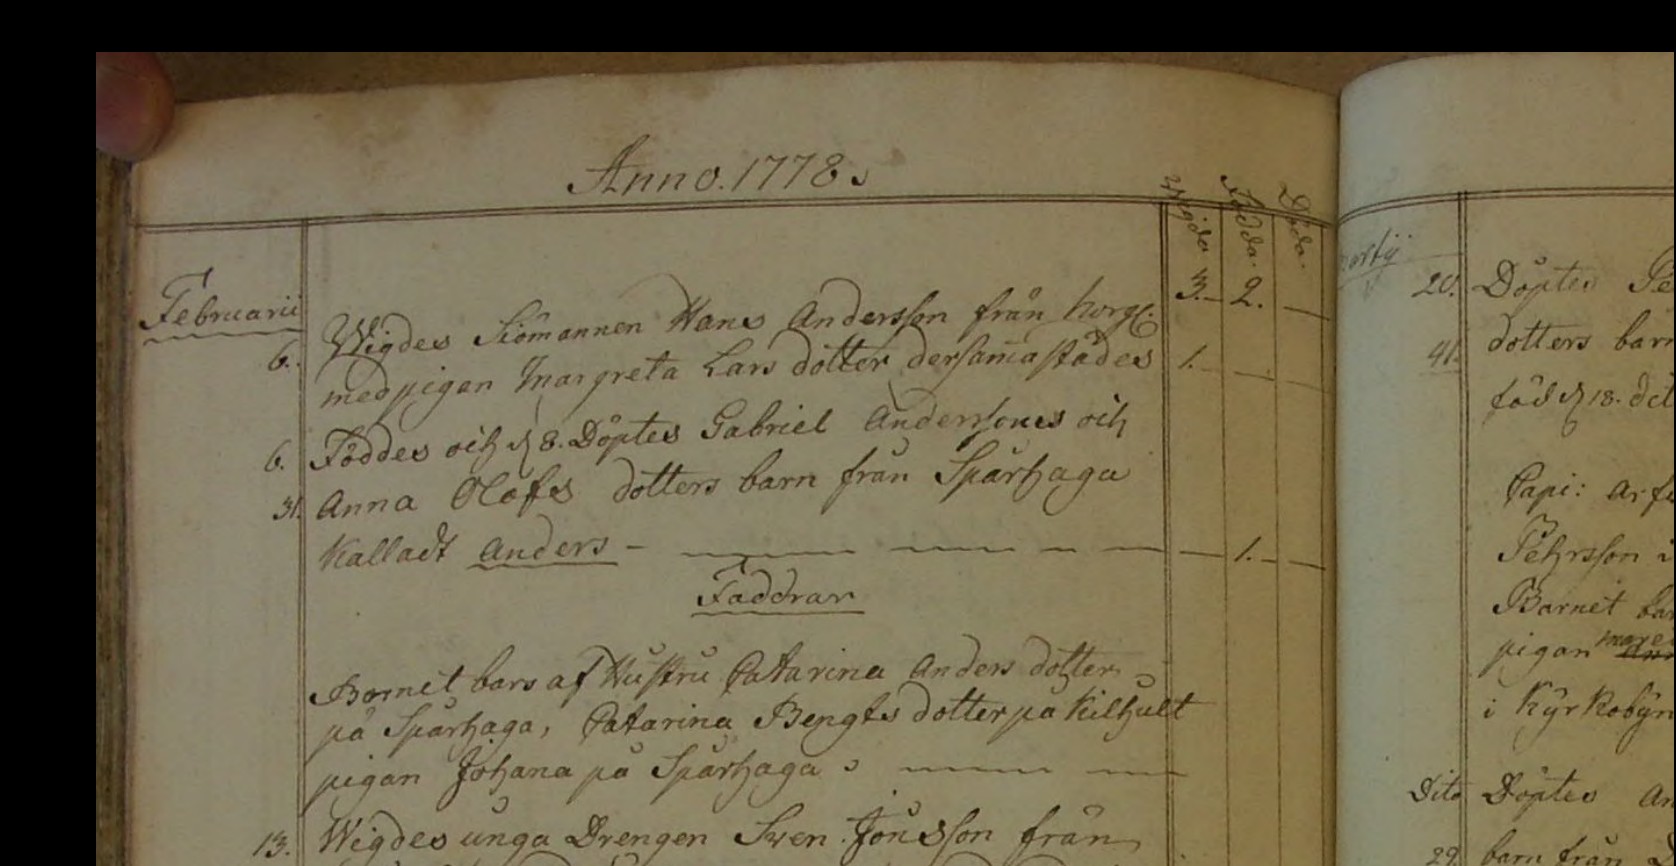 Anno. 1778.
Wigde Födda. Döda.
3. 2. —
Februarii
6. Wigdes Siömannen Hans Andersson från horge:
med pigan Margreta Lars dotter dersammastädes 1.
6. Föddes och d 8. Döptes Gabriel Anderssons och
31. Anna Olofs dotters barn från Spårhaga
Kalladt Anders - 1.
Faddrar
Barnet bars af Hustru Catarina Anders dotter
på Spårhaga, Catarina Bengts dotter på Kilhult
pigan Johana på Spårhaga
13. Wigdes unga Drengen Swen Jönsson från
20. Döptes Pe
41. dotters barn
föd d 18. dit
Capi: Arf
Pehrsson i
Barnet ba
pigan
i Kyrkobyn
Dito Döptes An
29. barn från